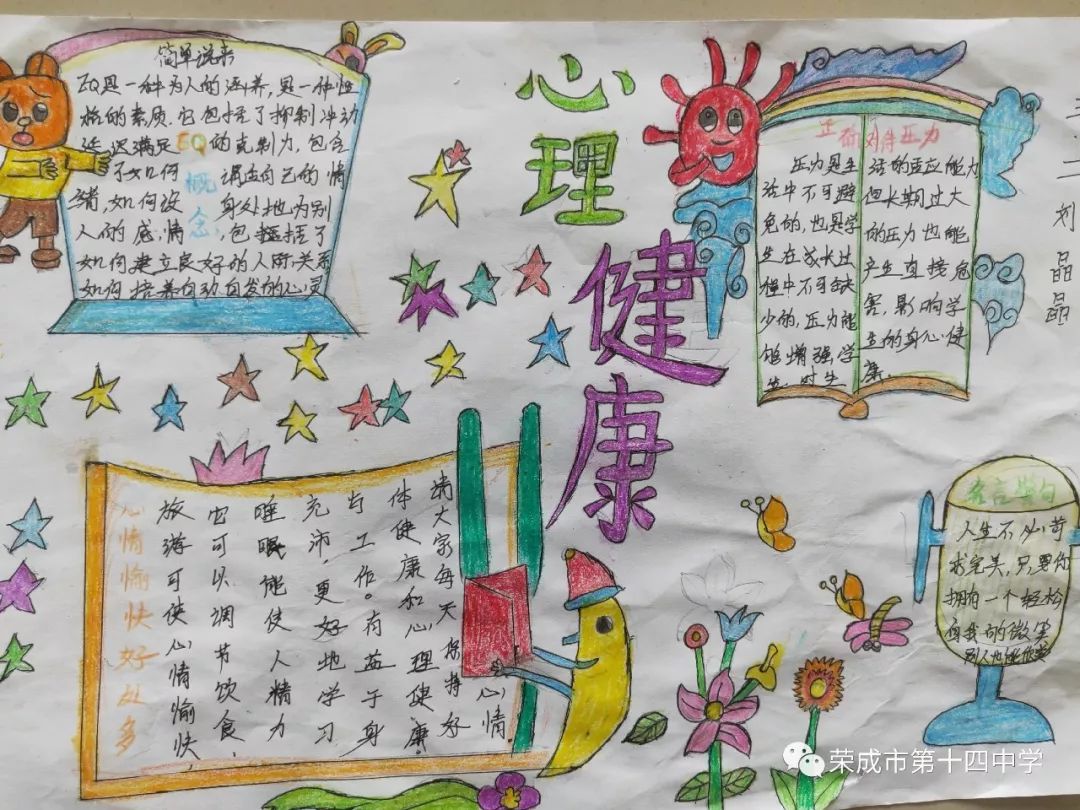 简单说来
EQ是一种为人的涵养，是一种性
格的素质.它包括了抑制冲动
延迟满足EQ的克制力，包含
了如何概调适自己的情
绪，如何设念身处地为别
人的感情，包括了
如何建立良好的人际关系
如何培养自动自发的心灵
心理
健康
正确对待压力
压力是生
活中不可避
免的，也是学
生在成长过
程中不可缺
少的，压力能
够增强学
生对生
活的适应能力
但长期过大
的压力也能
产生直接危
害，影响学
生的身心健
康.
三.二
刘晶晶
心情愉快好处多
旅游可使心情愉快，
它可以调节饮食，
睡眠能使人精力
充沛，更好地学习
与工作。有益于身
体健康和心理健康
请大家每天保持好心情
名言警句
人生不必苛
求完美，只要你
拥有一个轻松
自我的微笑
别人也能
荣成市第十四中学